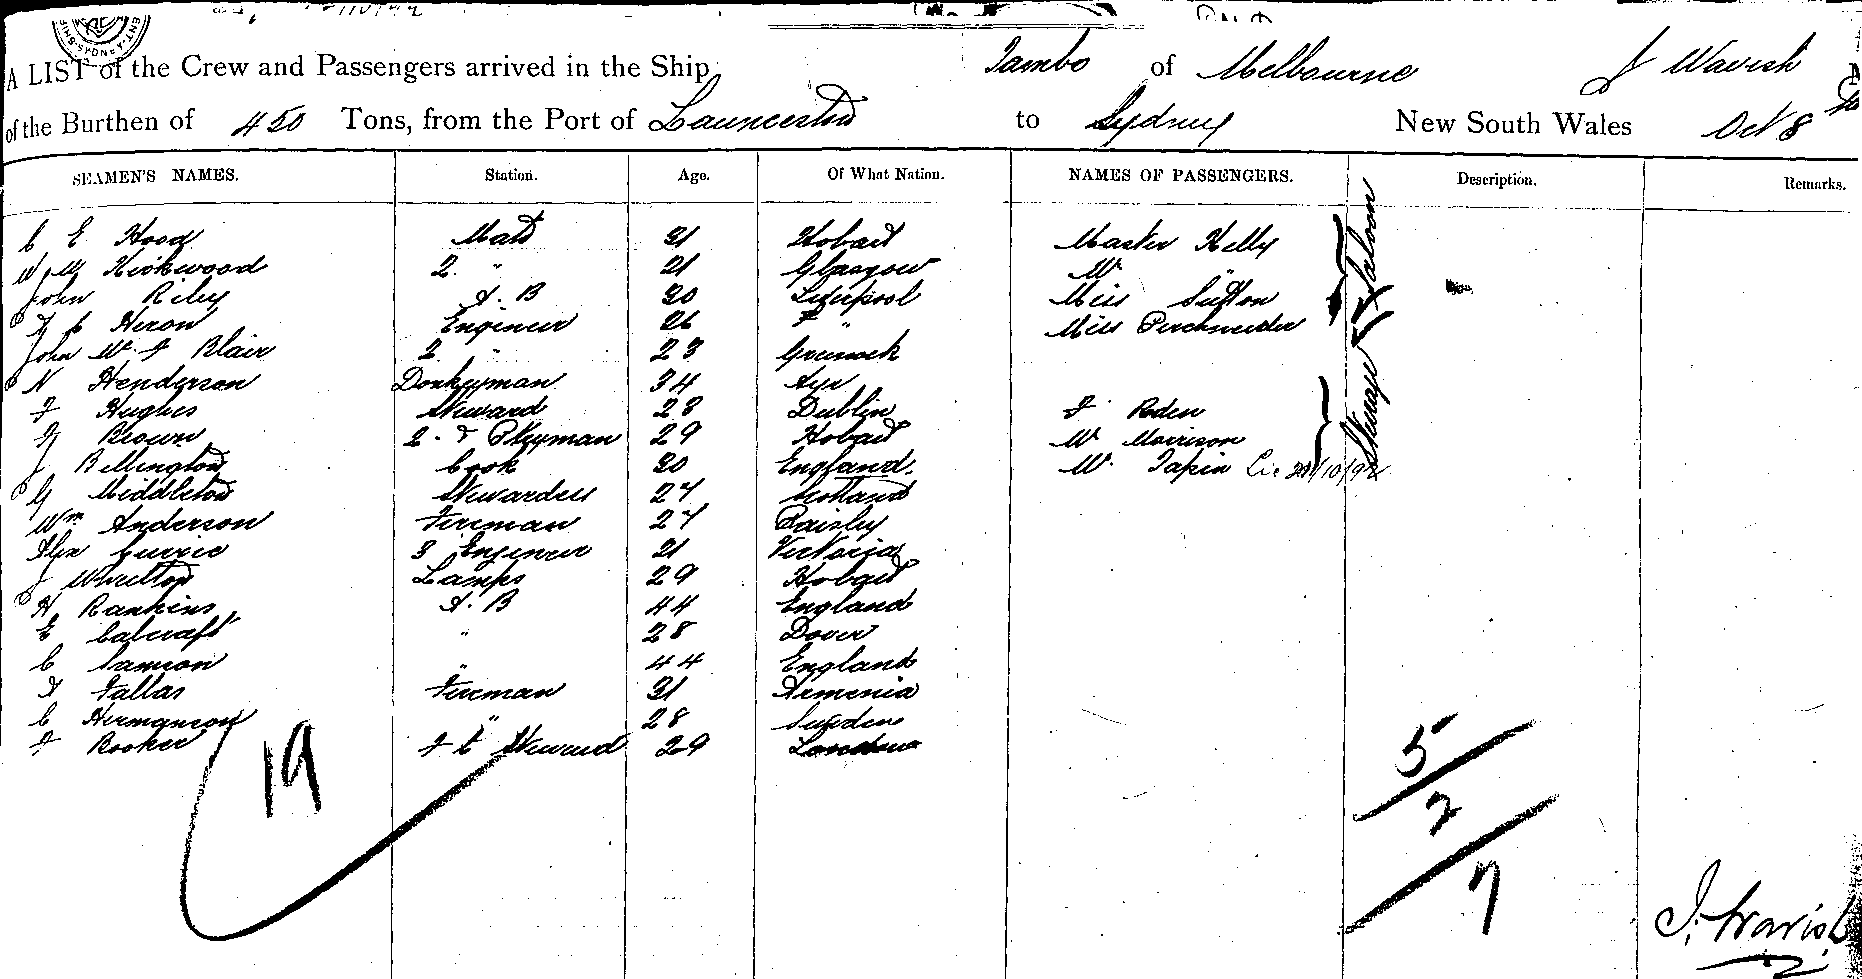 A LIST of the Crew and Passengers arrived in the Ship Tambo of Melbourne J Wavish
of the Burthen of 450 Tons, from the Port of Launceston to Sydney New South Wales Oct 8
SEAMEN'S NAMES. Station. Age. Of What Nation. NAMES OF PASSENGERS. Description. Remarks.
C E Hood Mate 31 Hobart Master Kelly
W W Kirkwood 2 " 21 Glasgow M
John Riley A. B 30 Liverpool Miss Sutton
Heron Engineer 26 " Miss
Saloon
John W. F Blair 2 " 23 Greenock
N Henderson Donkeyman 34 Ayr
F Hughes Steward 28 Dublin F Roden
Brown 2. & Pkyman 29 Hobart W Morrison
J Billington Cook 30 England. W. Tapin 20/10/92
Steerage
G Middleton Stewardess 27 Scotland
Wm Anderson Fireman 27 Paisley
Alex Currie 3 Engineer 21 Victoria
J Whutton Lamps 29 Hobart
H Rankins A. B 44 England
E Calcraft " 28 Dover
C Samson " 44 England
A Fallas Fireman 31 Armenia
C Hermanson " 28 Sweden
F Rooker F C Steward 29 London
19
5
2
7
J. Wavish